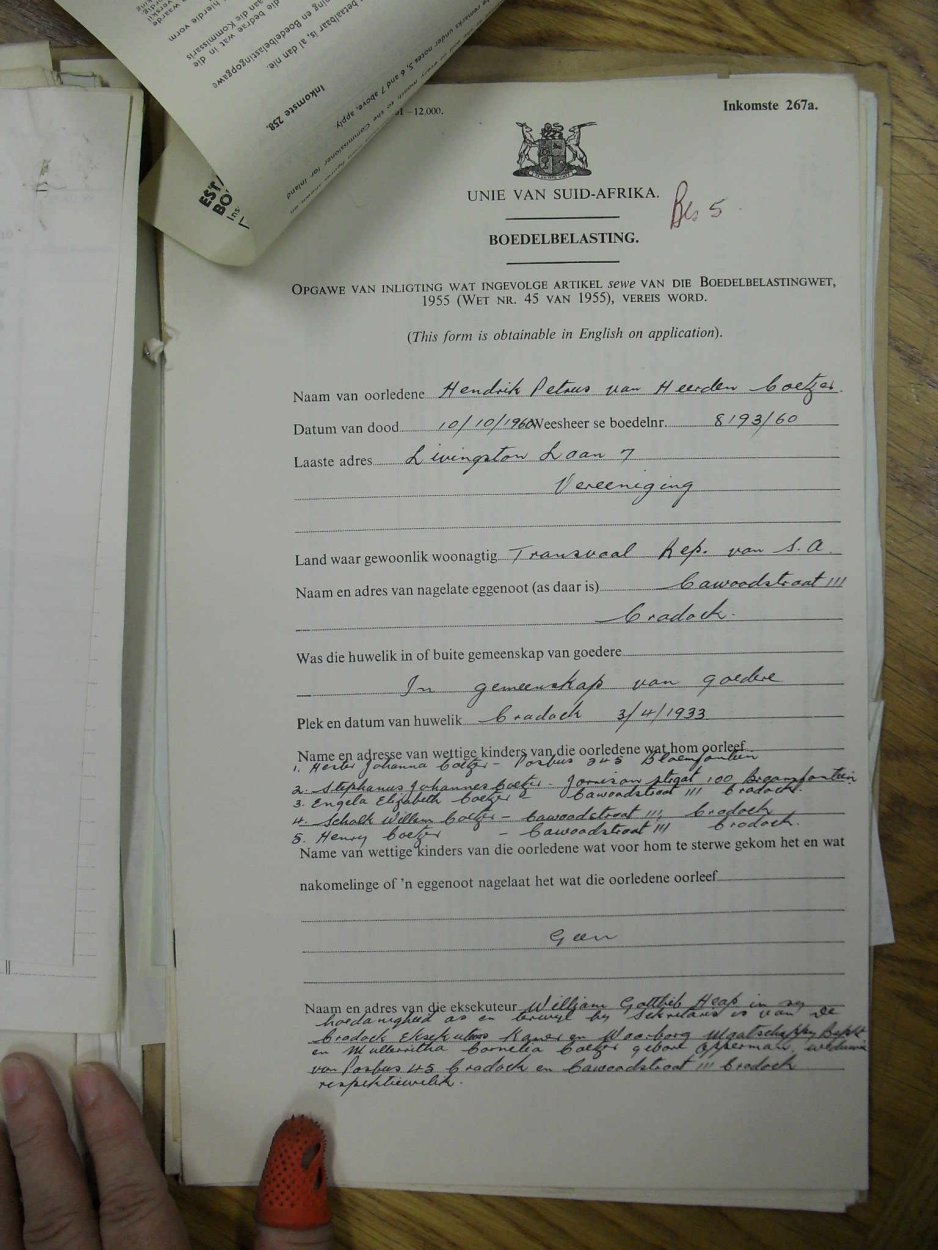 hierdie vorm
aan die Kommissaris
die bedrae wat in die
ing en Boedelbelastingopgawe
betaalbaar is, al dan nie.
Inkomste 258.
remarks under notes 5, 6 and 7 above, apply.
the Commissioner for Inland
—12,000.
Inkomste 267a.
UNIE VAN SUID-AFRIKA.
Bls 5
BOEDELBELASTING.
OPGAWE VAN INLIGTING WAT INGEVOLGE ARTIKEL sewe VAN DIE BOEDELBELASTINGWET,
1955 (WET NR. 45 VAN 1955), VEREIS WORD.
(This form is obtainable in English on application).
Naam van oorledene Hendrik Petrus van Heerden Coetzer
Datum van dood 10/10/1960 Weesheer se boedelnr. 8193/60
Laaste adres Livingston Laan 7
Vereeniging
Land waar gewoonlik woonagtig Transvaal Rep. van S.A.
Naam en adres van nagelate eggenoot (as daar is) Cawoodstraat 111
Cradock.
Was die huwelik in of buite gemeenskap van goedere
In gemeenskap van goedere
Plek en datum van huwelik Cradock 3/4/1933
Name en adresse van wettige kinders van die oorledene wat hom oorleef
1. Hester Johanna Coetzer - Posbus 345 Bloemfontein
2. Stephanus Johannes Coetzer - Jorrison straat 100 Braamfontein
3. Engela Elizabeth Coetzer Cawoodstraat 111 Cradock.
4. Schalk Willem Coetzer - Cawoodstraat 111, Cradock
5. Henry Coetzer - Cawoodstraat 111 Cradock.
Name van wettige kinders van die oorledene wat voor hom te sterwe gekom het en wat
nakomelinge of 'n eggenoot nagelaat het wat die oorledene oorleef
Geen
Naam en adres van die eksekuteur William Gottlieb Heap in sy
hoedanigheid as en terwyl hy Sekretaris is van De
Cradock Eksekuteurs Kamer en Waarborg Maatschappy Bepkt
en Cornelia Coetzer gebore Opperman, weduwee
van Posbus 45 Cradock en Cawoodstraat 111 Cradock
respektiewelik.